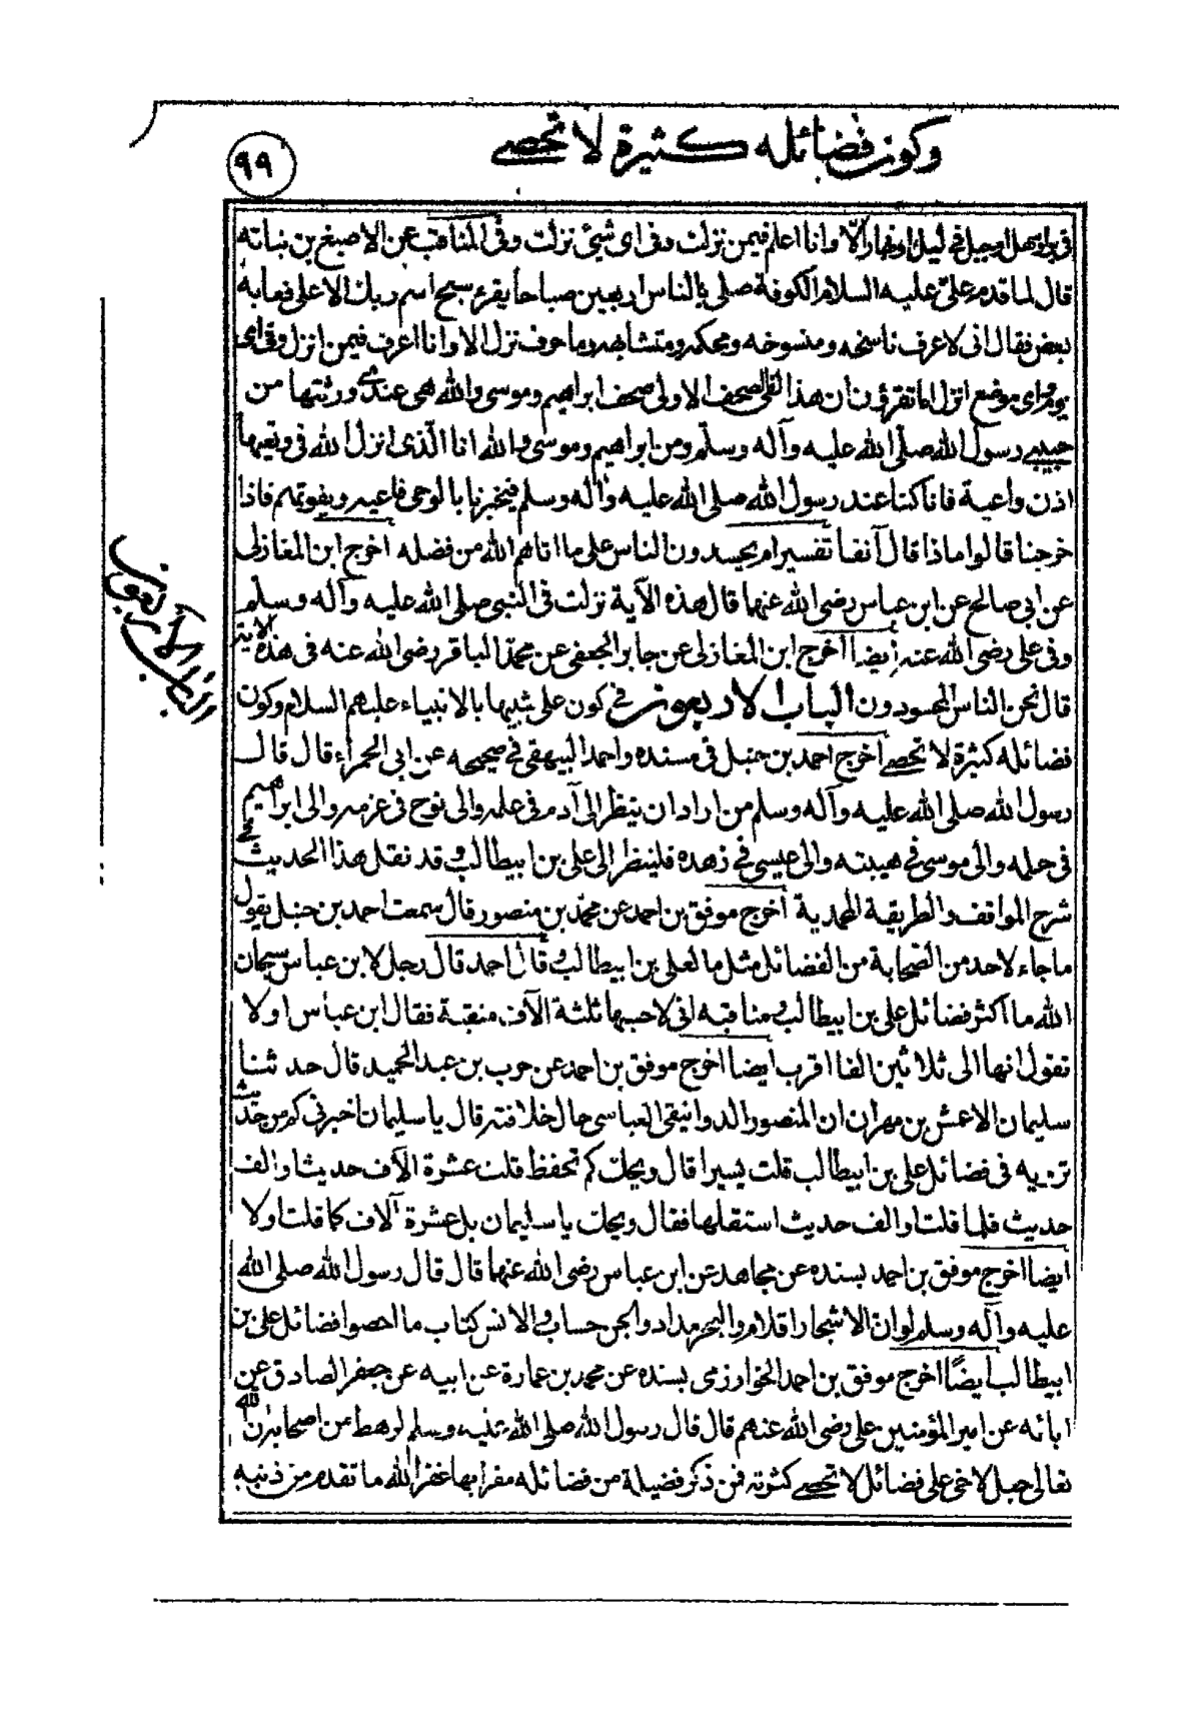 وكون فضائله كثيرة لا تحصى
٩٩
في بر او سهل او جبل في ليل او نهار الا وانا اعلم فيمن نزلت وفى اى شئ نزلت وفى المناقب عن الاصبغ بن نباته
قال لما قدم على عليه السلام الكوفة صلى بالناس اربعين صباحا يقرء سبح اسم ربك الاعلى فعابه
بعض فقال انى لاعرف ناسخه ومنسوخه ومحكمه ومتشابهه وما حرف نزل الا وانا اعرف فيمن انزل وفى اى
يوم واى موضع انزل اما تقرؤن ان هذا لفى الصحف الاولى صحف ابراهيم وموسى والله هى عندى ورثتها من
حبيبى رسول الله صلى الله عليه وآله وسلم ومن ابراهيم وموسى والله انا الذى انزل الله فى وتعيها
اذن واعية فانا كنا عند رسول الله صلى الله عليه وآله وسلم فيخبرنا بالوحى فاعيه ويفوتهم فاذا
خرجنا قالوا ماذا قال آنفا تفسير ام يحسدون الناس على ما اتاهم الله من فضله اخرج ابن المغازلى
عن ابى صالح عن ابن عباس رضى الله عنهما قال هذه الآية نزلت فى النبى صلى الله عليه وآله وسلم
وفى على رضى الله عنه ايضا اخرج ابن المغازلى عن جابر الجعفى عن محمد الباقر رضى الله عنه فى هذه الاية
قال نحن الناس المحسودون الباب الاربعون في كون على شبيها بالانبياء عليهم السلام وكون
فضائله كثيرة لا تحصى اخرج احمد بن حنبل فى مسنده واحمد البيهقى في صحيحه عن ابى الحمراء قال قال
رسول الله صلى الله عليه وآله وسلم من اراد ان ينظر الى آدم فى علمه والى نوح فى عزمه والى ابراهيم
فى حلمه والى موسى في هيبته والى عيسى في زهده فلينظر الى على بن ابيطالب وقد نقل هذا الحديث في
شرح المواقف والطريقة المحمدية اخرج موفق بن احمد عن محمد بن منصور قال سمعت احمد بن حنبل يقول
ما جاء لاحد من الصحابة من الفضائل مثل ما لعلى بن ابيطالب وقال احمد قال رجل لابن عباس سبحان
الله ما اكثر فضائل على بن ابيطالب ومناقبه انى لاحسبها ثلثة الآف منقبة فقال ابن عباس اولا
تقول انها الى ثلاثين الفا اقرب ايضا اخرج موفق بن احمد عن حرب بن عبد الحميد قال حدثنا
سليمان الاعمش بن مهران ان المنصور الدوانيقى العباسى حال خلافته قال يا سليمان اخبرنى كم من حديث
ترويه فى فضائل على بن ابيطالب قلت يسيرا قال ويحك كم تحفظ قلت عشرة الآف حديث او الف
حديث فلما قلت او الف حديث استقلها فقال ويحك يا سليمان بل عشرة آلاف كما قلت اولا
ايضا اخرج موفق بن احمد بسنده عن مجاهد عن ابن عباس رضى الله عنهما قال قال رسول الله صلى الله
عليه وآله وسلم لو ان الاشجار اقلام والبحر مداد والجن حساب والانس كتاب ما احصوا فضائل على بن
ابيطالب ايضا اخرج موفق بن احمد الخوارزمى بسنده عن محمد بن عمارة عن ابيه عن جعفر الصادق عن
ابائه عن امير المؤمنين على رضى الله عنهم قال قال رسول الله صلى الله عليه وسلم لرهط من اصحابه ان الله
تعالى جعل لاخى على فضائل لا تحصى كثرته فمن ذكر فضيلة من فضائله مقرا بها غفر الله ما تقدم من ذنبه
الباب الأربعون